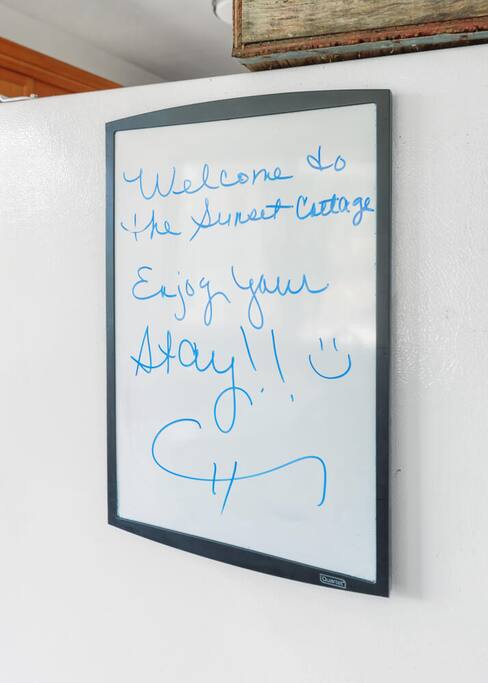 Welcome to
the Sunset Cottage
Enjoy your
Stay!! :)
Quartet